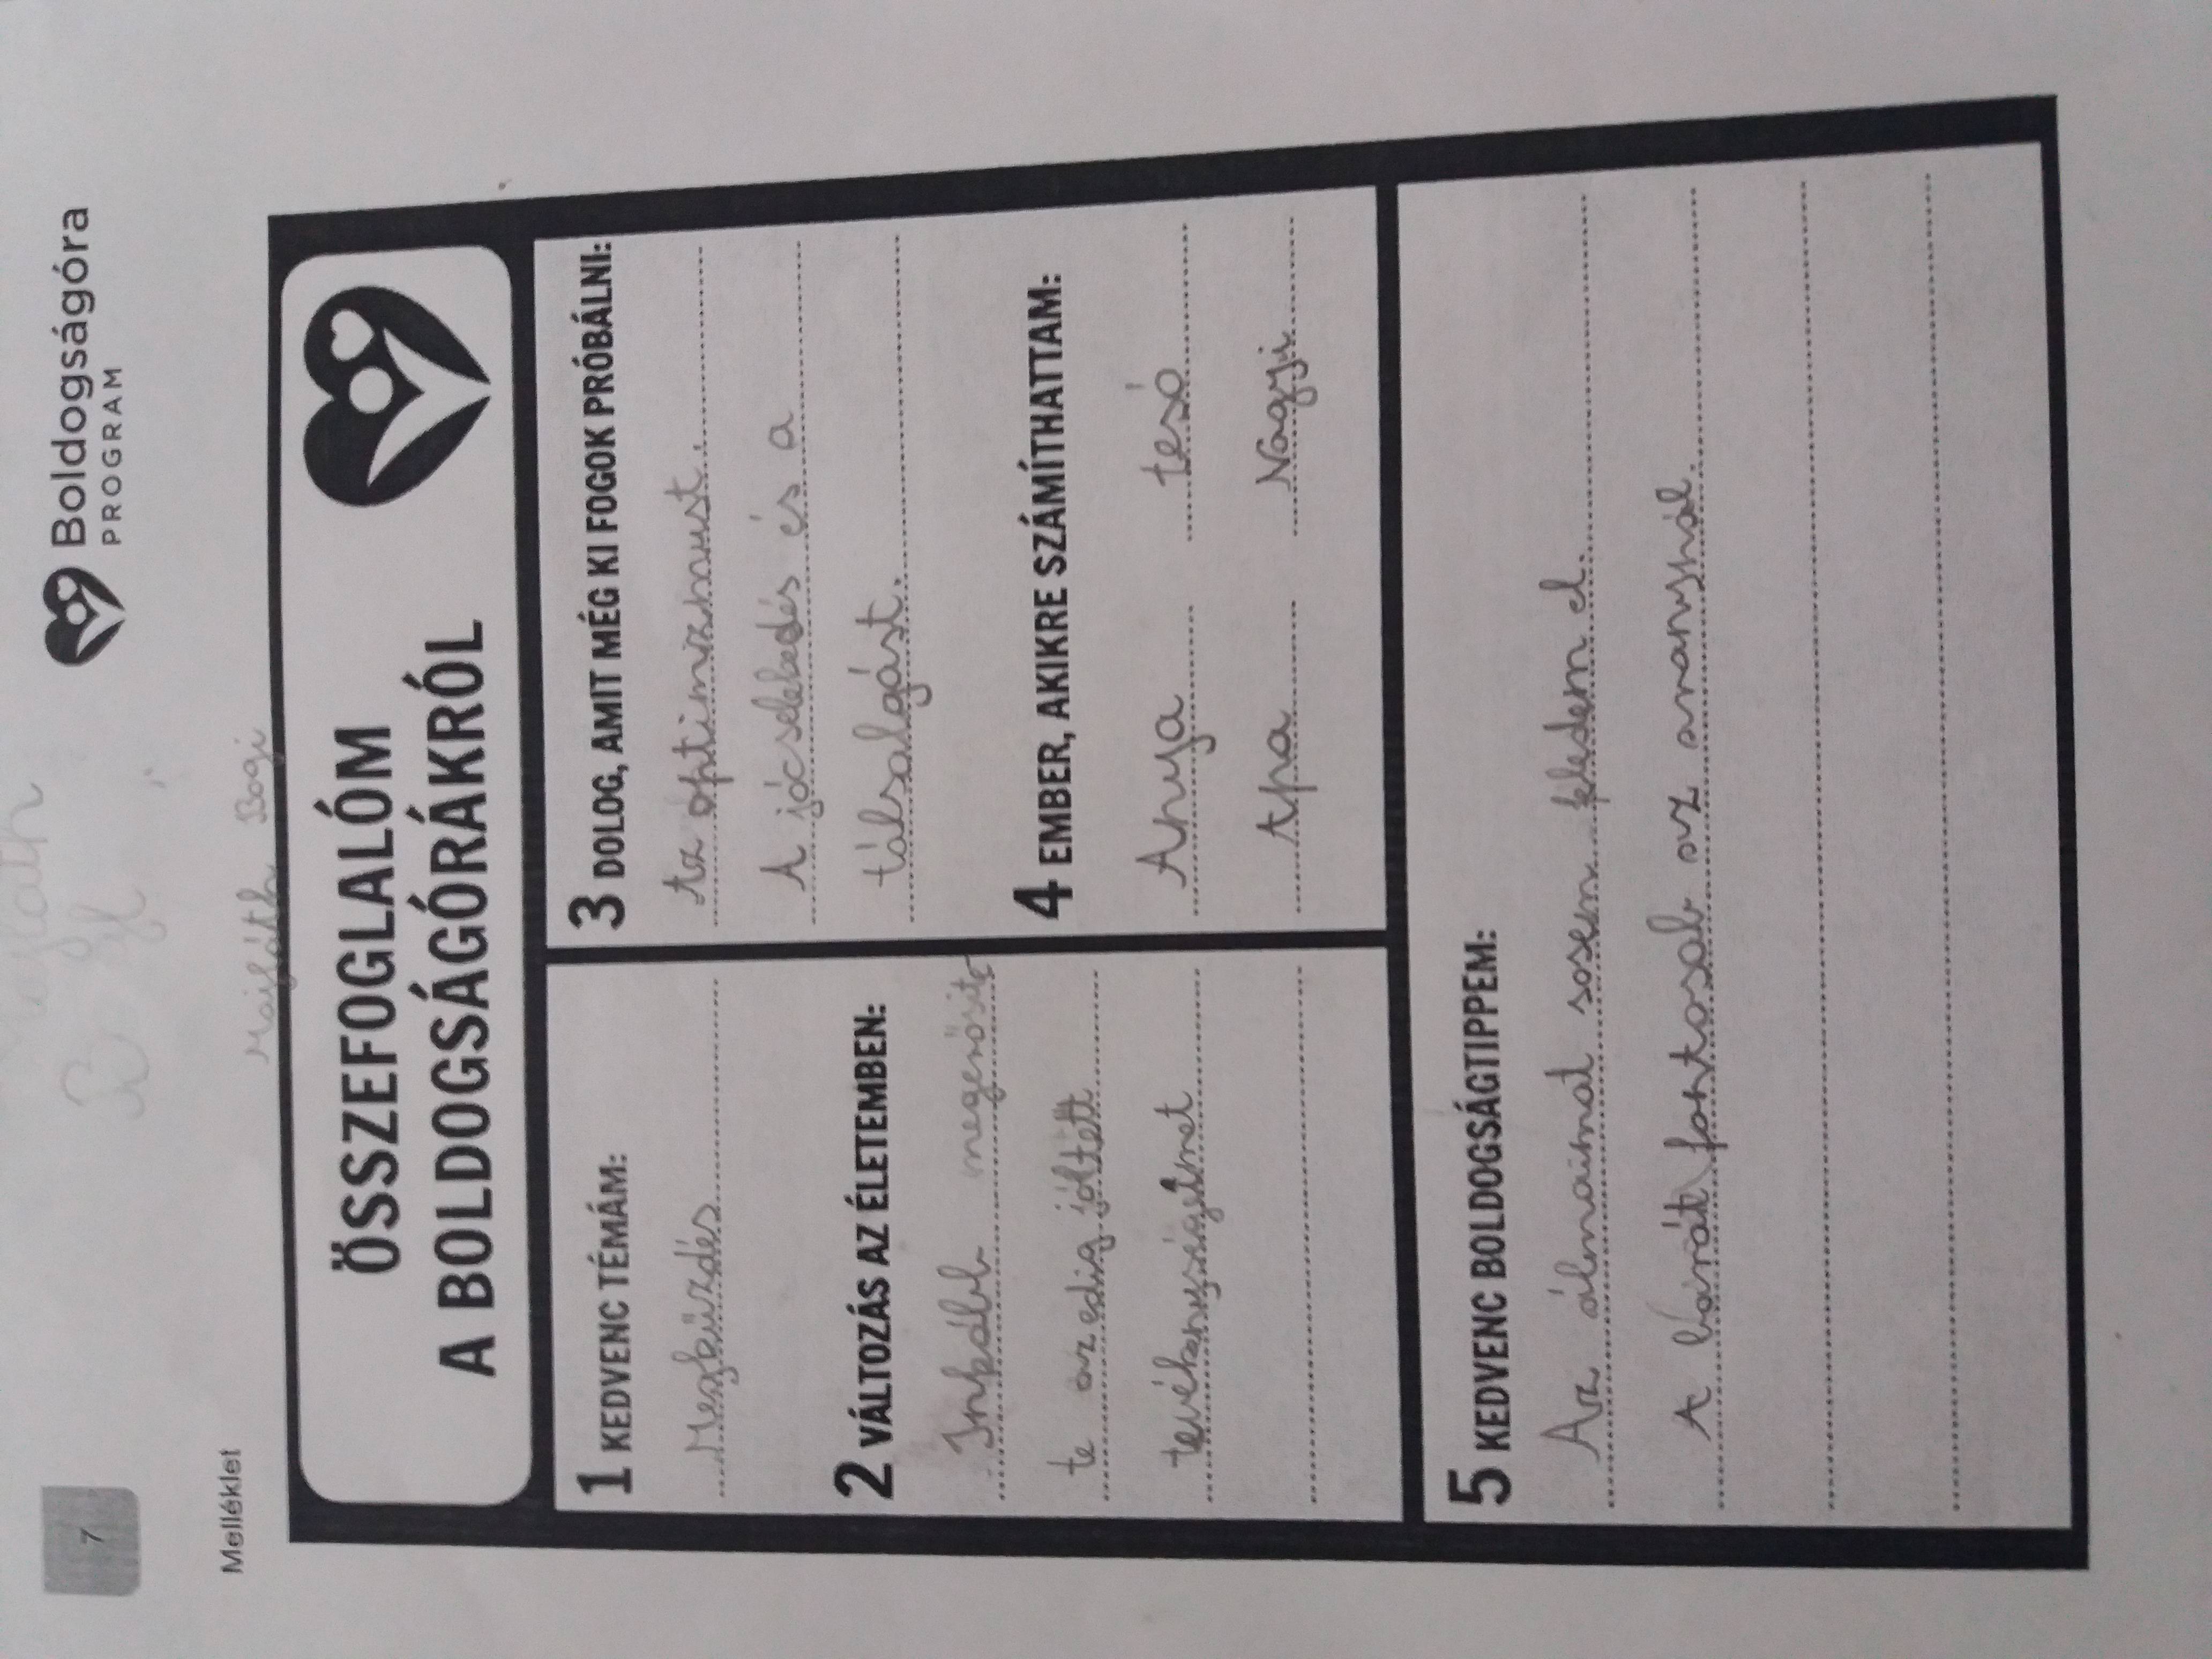 7
Boldogságóra
PROGRAM
Melléklet
Majláth Bogi
ÖSSZEFOGLALÓM
A BOLDOGSÁGÓRÁKRÓL
1 KEDVENC TÉMÁM:
Megküzdés
2 VÁLTOZÁS AZ ÉLETEMBEN:
Inkább megerősitet
te az edig jóltett
tevékenységeimet
3 DOLOG, AMIT MÉG KI FOGOK PRÓBÁLNI:
Az optimizmust.
A jócselekedés és a
társalgást.
4 EMBER, AKIKRE SZÁMÍTHATTAM:
Anya tesó
Apa Nagyi
5 KEDVENC BOLDOGSÁGTIPPEM:
Az álmaimat sosem feledem el.
A barát fontosab az aranynál.